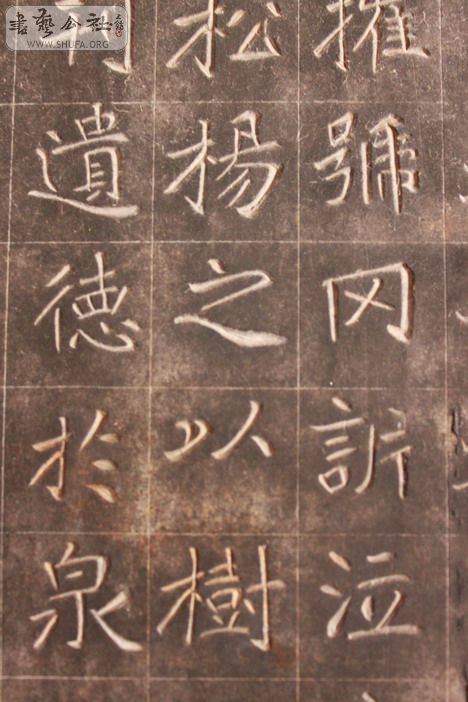 書藝公社
WWW.SHUFA.ORG
摧號冈訴泣
松楊之以樹
遺德於泉